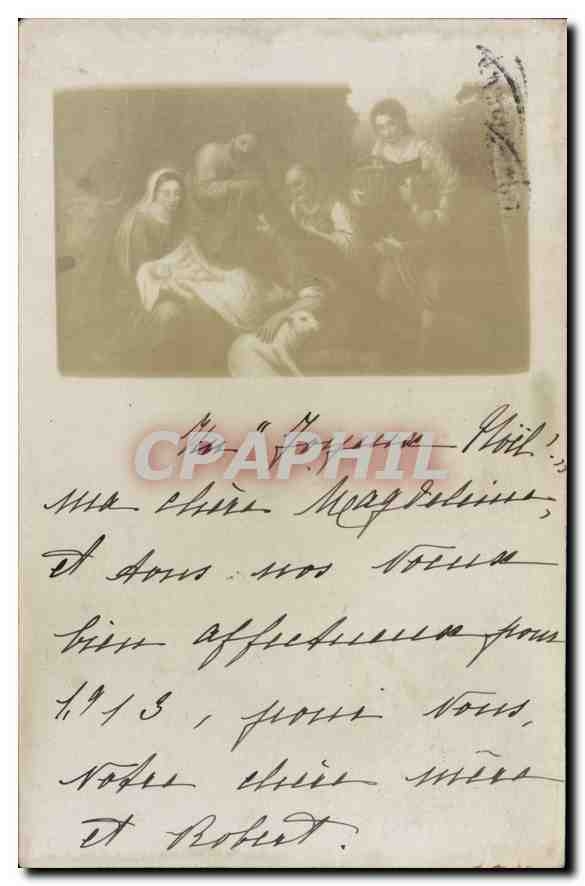 Un "Joyeux Noël!"
CPAPHIL
ma chère Magdeleine,
et tous nos voeux
bien affectueux pour
1913, pour vous,
votre chère mère
et Robert.